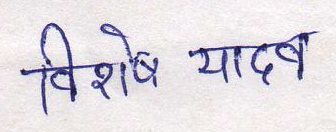 विशेष यादव